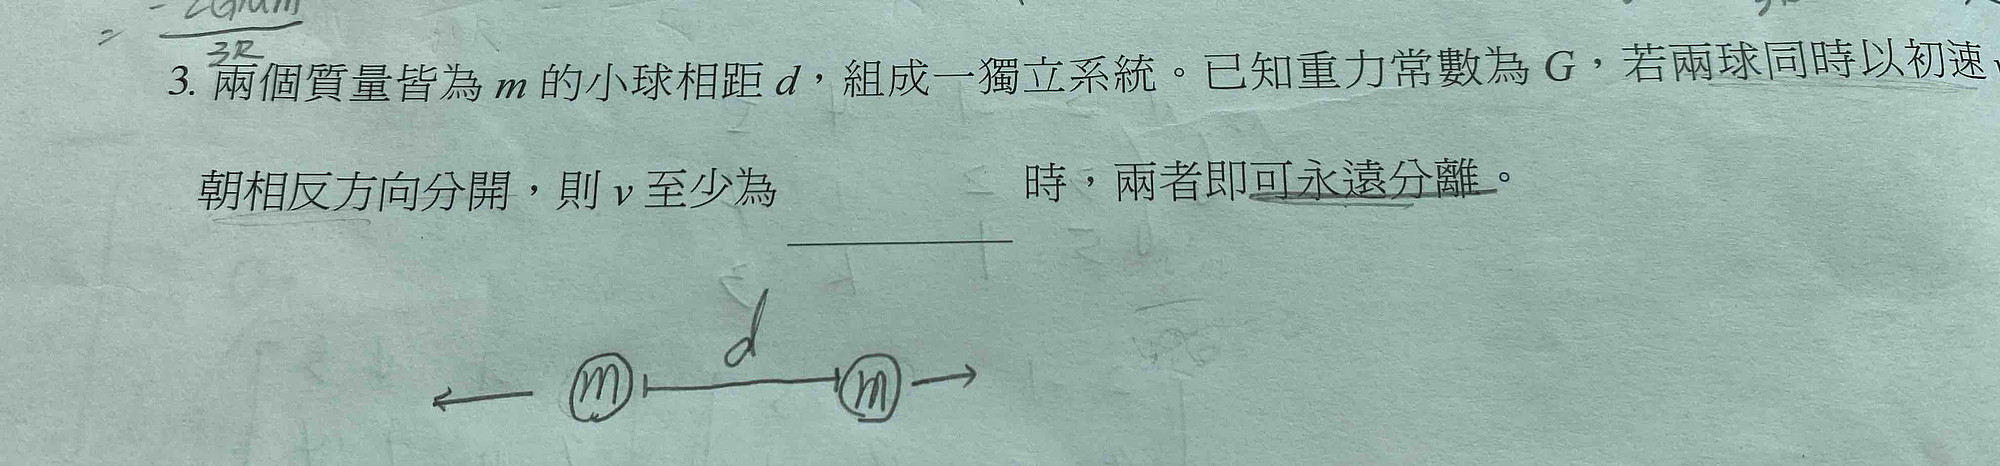 = -2GMm
3R
3. 兩個質量皆為 m 的小球相距 d，組成一獨立系統。已知重力常數為 G，若兩球同時以初速
朝相反方向分開，則 v 至少為 時，兩者即可永遠分離。
d
m m